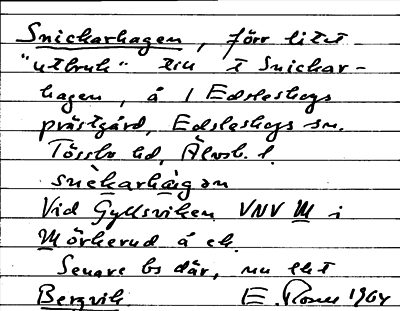 Snickarhagen, förr litet
"utbruk" till t Snickar-
hagen, å 1 Edsleskogs
prästgård, Edsleskogs sn.
Tössbo hd, Älvsb. l.
snickarhagen
Vid Gyltsviken VNV M i
Mörkerud å ek.
Senare bs där, nu ett
Bergvik. E. Rosen 1964